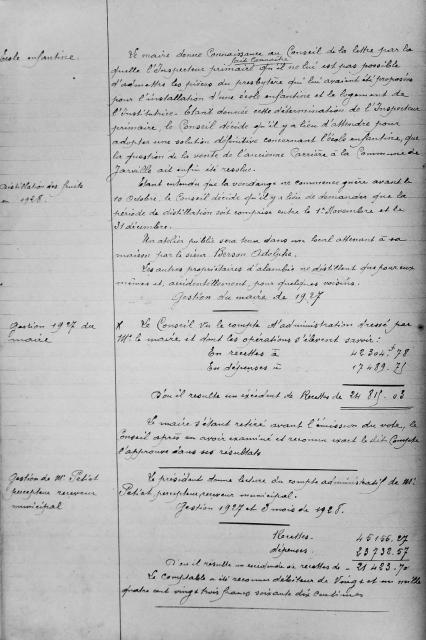 École enfantine.
Le maire donne connaissance au Conseil de la lettre par la
quelle l'Inspecteur primaire fait connaître qu'il ne lui est pas possible
d'admettre les pièces du presbytère qui lui avaient été proposées
pour l'installation d'une école enfantine et le logement de
l'Institutrice. Étant donnée cette détermination de l'Inspecteur
primaire, le Conseil décide qu'il y a lieu d'attendre pour
adopter une solution définitive concernant l'école enfantine, que
la question de la vente de l'ancienne Carrière à la Commune de
Jarville ait enfin été résolue.
Distillation des fruits
en 1928.
Étant entendu que la vendange ne commence guère avant le
10 Octobre, le Conseil décide qu'il y a lieu de demander que la
période de distillation soit comprise entre le 1er Novembre et le
31 décembre.
Un atelier public sera tenu dans un local attenant à sa
maison par le sieur Berson Adolphe.
Les autres propriétaires d'alambic ne distillent que pour eux
mêmes et, accidentellement, pour quelques voisins.
Gestion du maire de 1927
Gestion 1927 du
maire
X Le Conseil Vu le compte d'administration dressé par
Mr le maire et dont les opérations s'élèvent savoir:
En recettes à 42304f78
En dépenses à 17489.75
D'où il résulte un excédent de Recettes de 24815.03
Le maire s'étant retiré avant l'émission du vote, le
Conseil après en avoir examiné et reconnu exact le dit Compte
l'approuve dans ses résultats
Gestion de Mr Petiet
percepteur receveur
municipal
Le président donne lecture du compte administratif de Mr
Petiet percepteur receveur municipal.
Gestion 1927 et 3 mois de 1928.
Recettes. 45156.27
dépenses. 23732.57
D'où il résulte un excédent de recettes de - 21423.70
Le Comptable a été reconnu débiteur de Vingt et un mille
quatre cent vingt trois francs soixante dix centimes